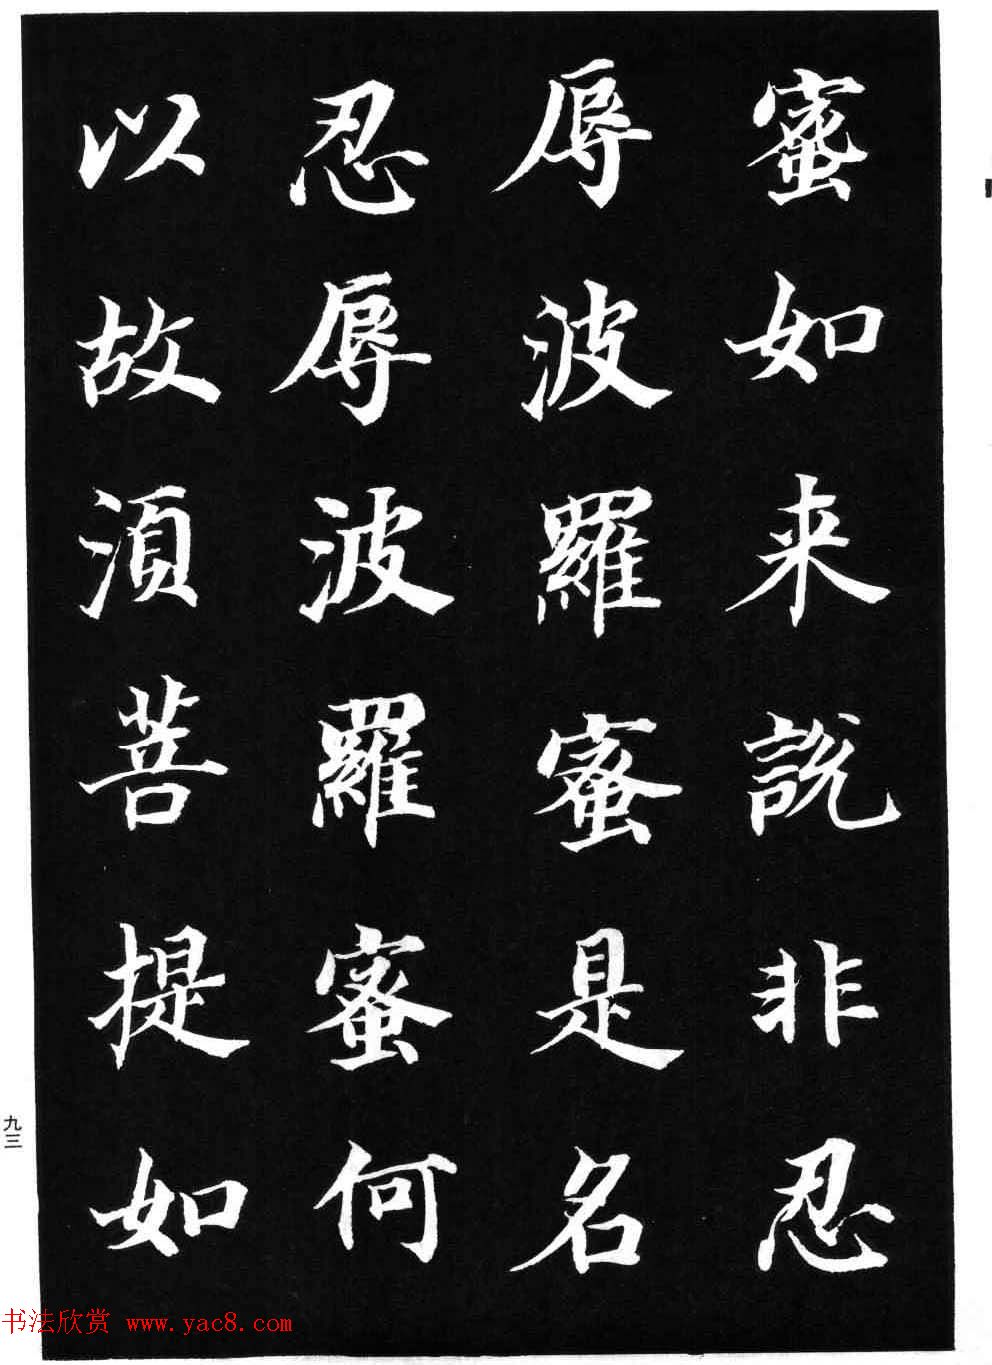 蜜如来説非忍
辱波羅蜜是名
忍辱波羅蜜何
以故湏菩提如
九三
书法欣赏 www.yac8.com